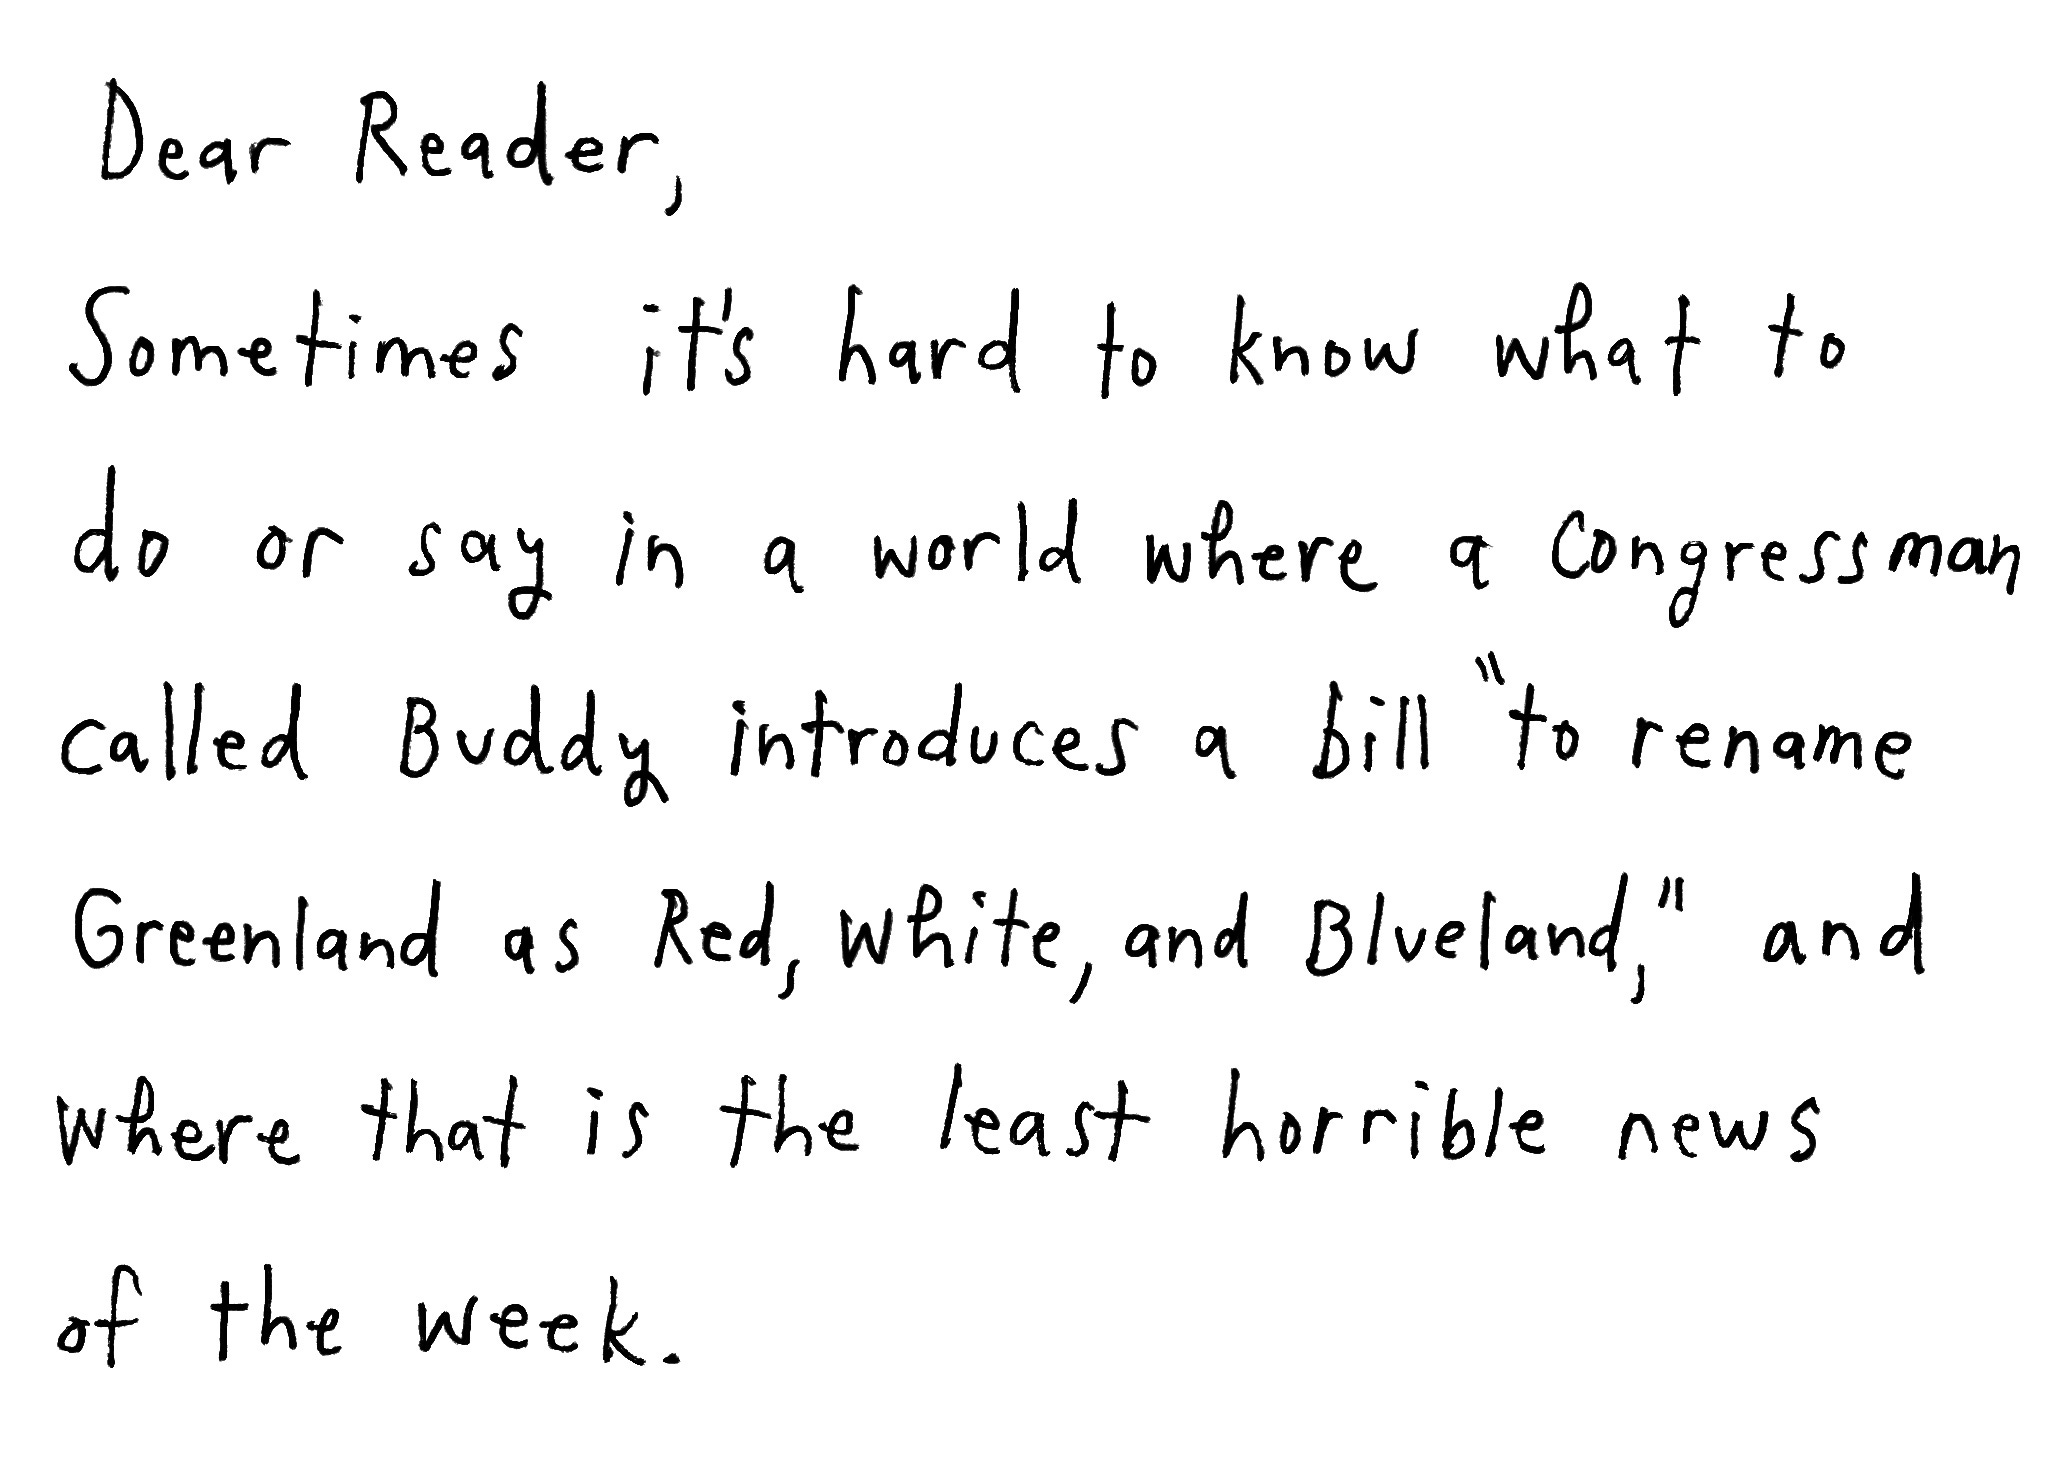 Dear Reader,
Sometimes it's hard to know what to
do or say in a world where a Congressman
called Buddy introduces a bill "to rename
Greenland as Red, White, and Blueland," and
where that is the least horrible news
of the week.